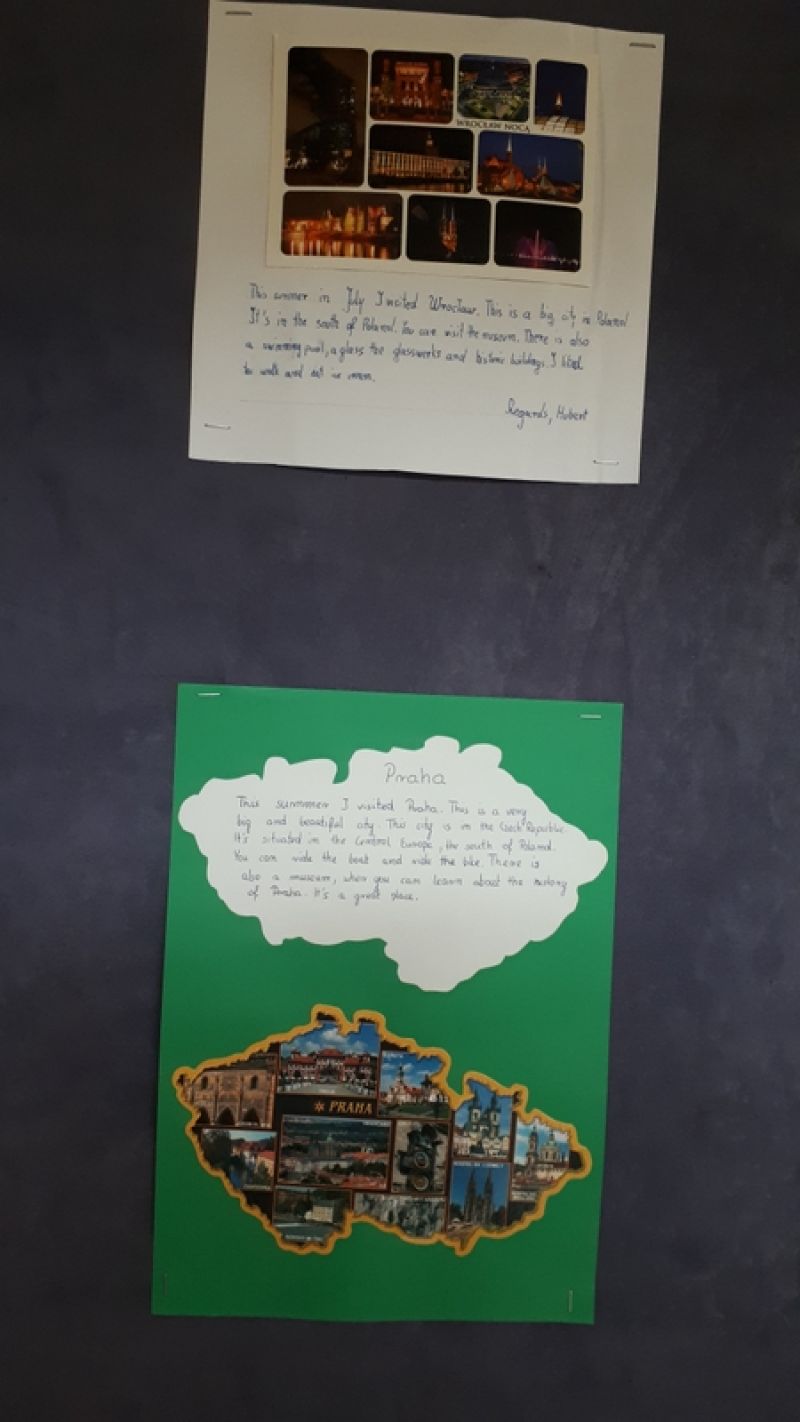 WROCŁAW NOCĄ
This summer in July I visited Wrocław. This is a big city in Poland
It's in the south of Poland. You can visit the museum. There is also
a swimming pool, a glass the glassworks and historic buildings. I liked
to walk and eat ice cream.
Regards, Hubert
Praha
This summer I visited Praha. This is a very
big and beautiful city. This city is in the Czech Republic.
It's situated in the Central Europe, the south of Poland.
You can ride the boat and ride the bike. There is
also a museum, when you can learn about the history
of Praha. It's a great place.
PRAHA